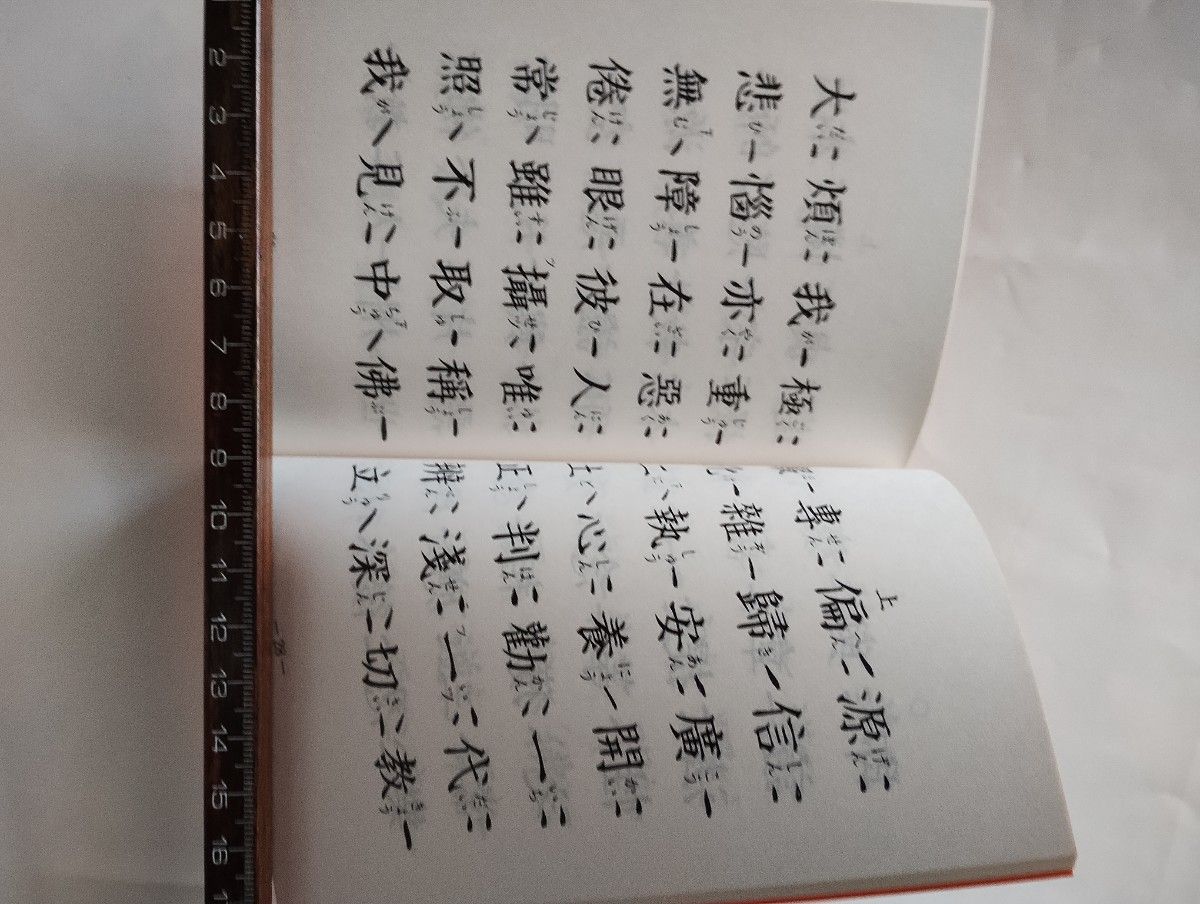 上
源信廣開一代教
偏歸安養勸一切
專雜執心判淺深
土正辨立
極重惡人唯稱佛
我亦在彼攝取中
煩惱障眼雖不見
大悲無倦常照我
2 3 4 5 6 7 8 9 10 11 12 13 14 15 16